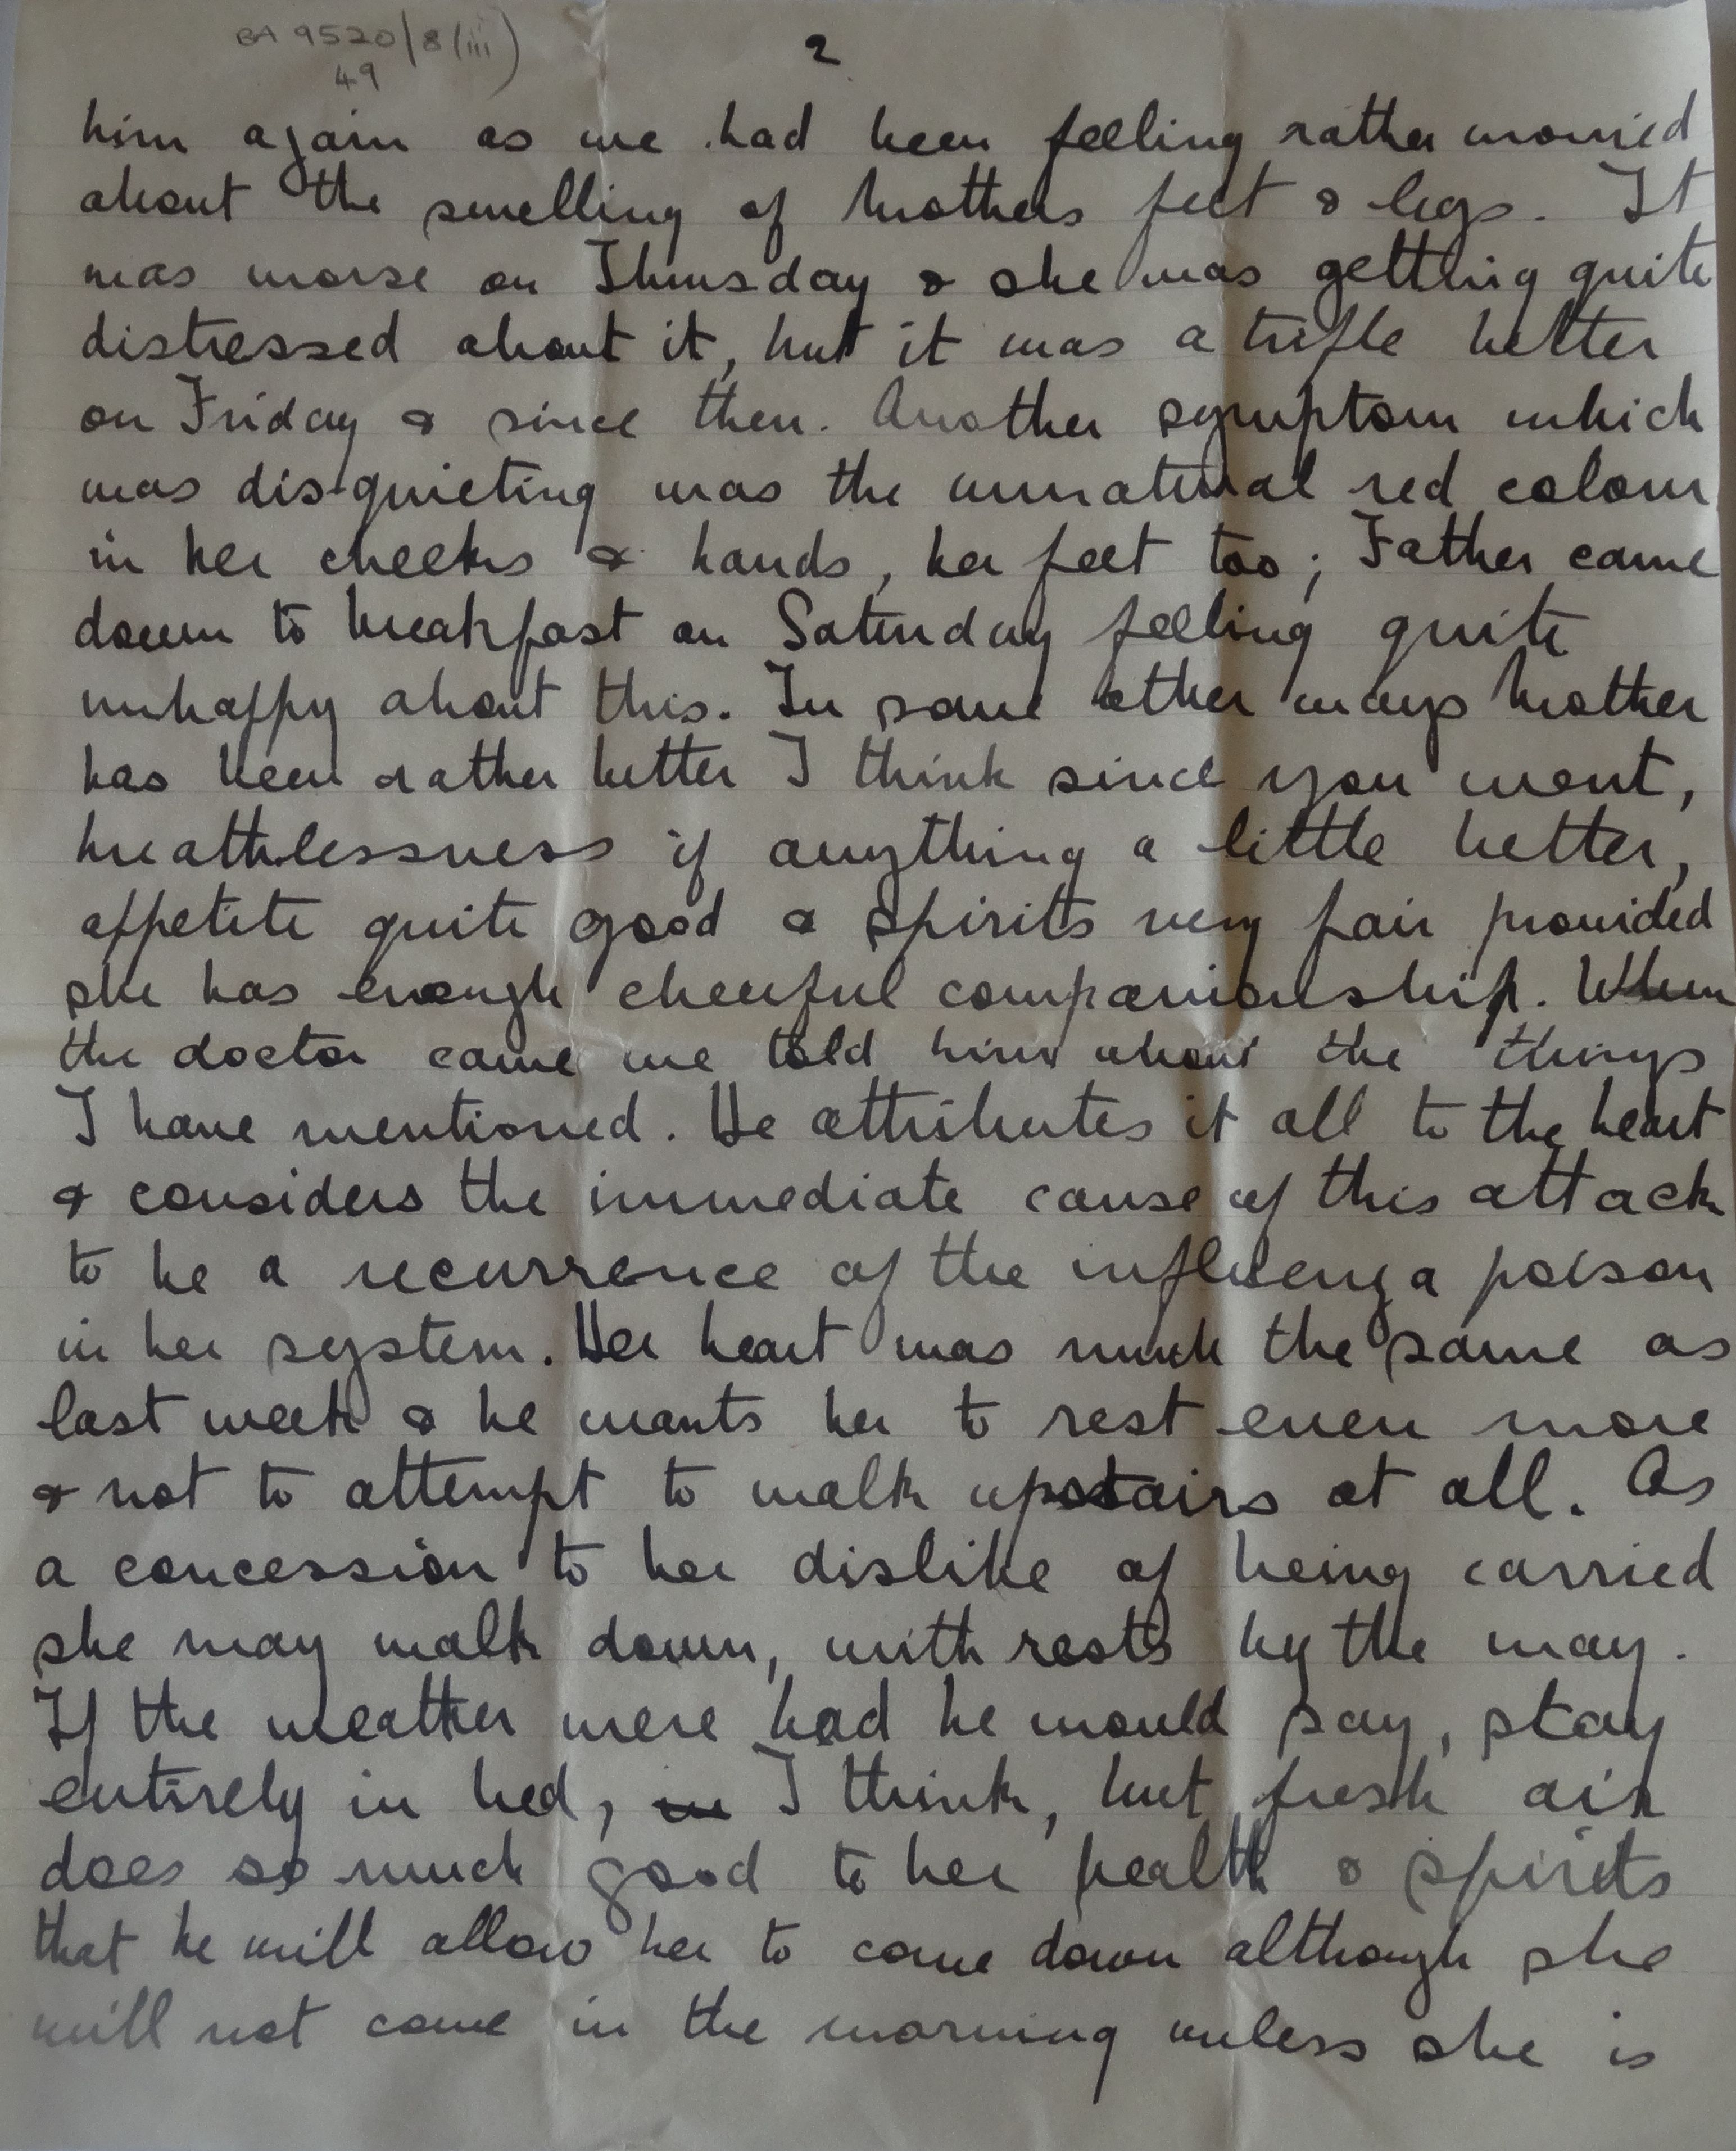 BA 9520/8(iii)
49
2
him again as we had been feeling rather worried
about the swelling of Mothers feet & legs. It
was worse on Thursday & she was getting quite
distressed about it, but it was a trifle better
on Friday & since then. Another symptom which
was dis-quieting was the unnatural red colour
in her cheeks & hands, her feet too; Father came
down to breakfast on Saturday feeling quite
unhappy about this. In some other ways Mother
has been rather better I think since you went,
breathlessness if anything a little better,
appetite quite good & spirits very fair provided
she has enough cheerful companionship. When
the doctor came we told him about the things
I have mentioned. He attributes it all to the heart
& considers the immediate cause of this attack
to be a recurrence of the influenza poison
in her system. Her heart was much the same as
last week & he wants her to rest even more
& not to attempt to walk upstairs at all. As
a concession to her dislike of being carried
she may walk down, with rests by the way.
If the weather were bad he would say, stay
entirely in bed, I think, but fresh air
does so much good to her health & spirits
that he will allow her to come down although she
will not come in the morning unless she is